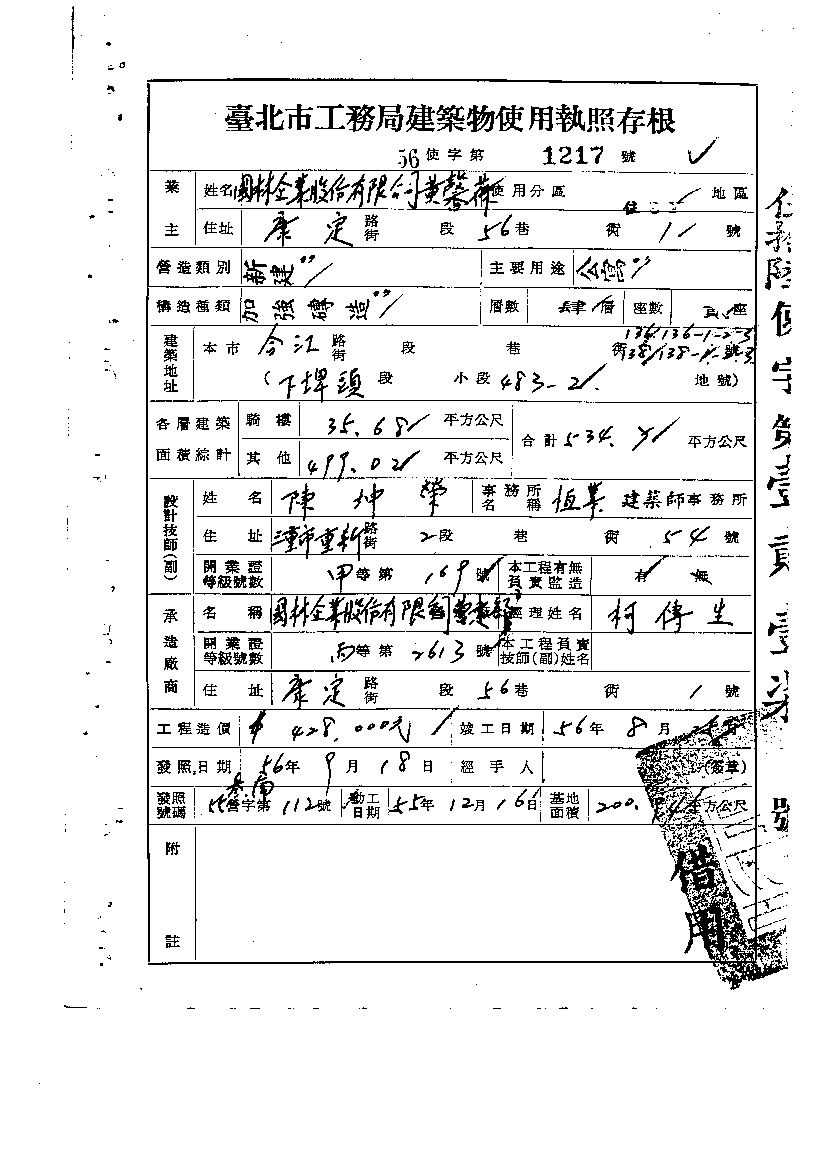 臺北市工務局建築物使用執照存根
56 使字第 1217 號
業主 姓名 國林企業股份有限公司黃馨荷 使用分區 住 地區
住址 康定 路街 段 56 巷 衖 1 號
營造類別 新建 主要用途 公寓
構造種類 加強磚造 層數 肆層 座數 座
建築地址 本市 今江 路街 段 巷 衖 號
136.136-1-2-3
138.138-1-2-3
(下埤頭 段 小段 483-2 地號)
各層建築面積綜計 騎樓 35.68 平方公尺 合計 534. 平方公尺
其他 499.02 平方公尺
設計技師(副) 姓名 陳坤榮 事務所名稱 恆業 建築師事務所
住址 重新 路街 2 段 巷 衖 54 號
開業證等級號數 甲 等第 169 號 本工程有無負責監造 有 無
承造廠商 名稱 國林企業股份有限公司 經理姓名 柯傳生
開業證等級號數 丙 等第 2613 號 本工程負責技師(副)姓名
住址 康定 路街 段 56 巷 衖 1 號
工程造價 $ 428,000元 竣工日期 56 年 8 月
發照日期 56 年 9 月 18 日 經手人 (簽章)
發照號碼 55 營字第 112 號 動工日期 55 年 12 月 16 日 基地面積 200. 方公尺
附註
借用
伍拾陸使字第壹貳壹柒號